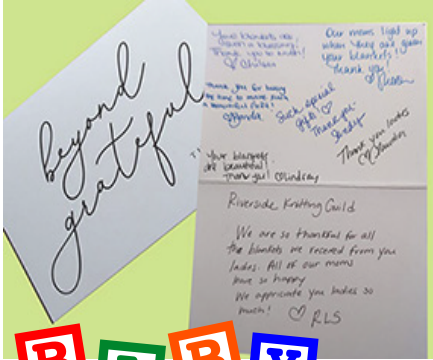 beyond
grateful
Your blankets are
such a blessing.
Thank you so much!
Our moms light up
when they are given
your blankets!
Thank you!
Thank you for being
so kind to make such
a beautiful gift!
Such special
gifts ♡
Thank you
Thank you ladies
Your blankets
are beautiful!
Thank you! ♡Lindsay
Riverside Knitting Guild
We are so thankful for all
the blankets we recieved from you
ladies. All of our moms
are so happy
We appriciate you ladies so
much! ♡ RLS
B E B Y